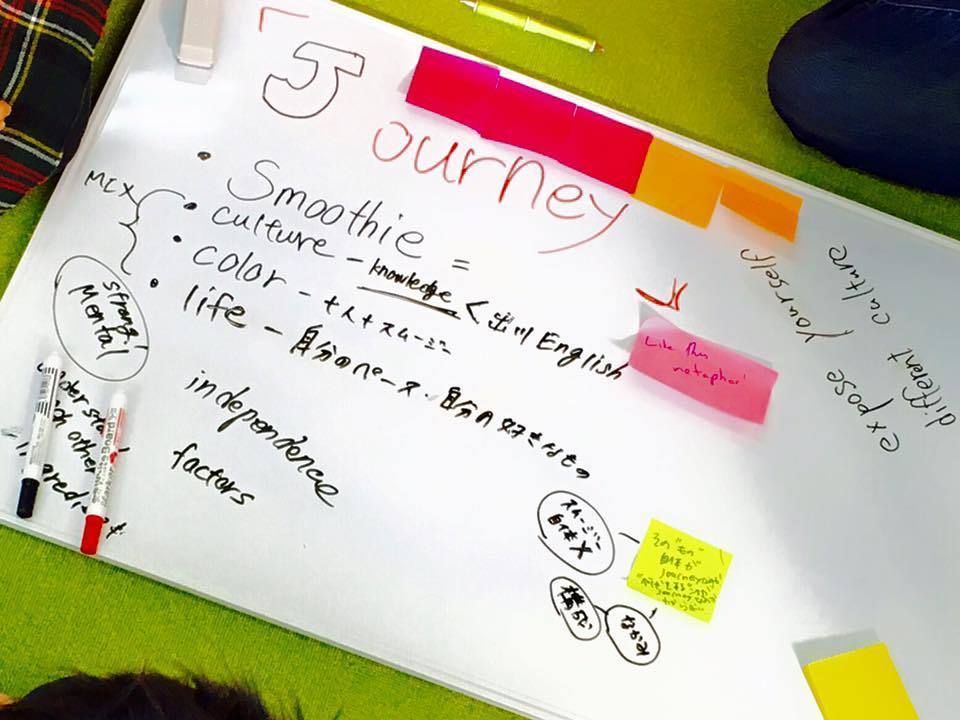 「Journey」
MIX
• Smoothie =
• culture - knowledge < 出川 English
• color - 十人十スムージー
• life - 自分のペース、自分の好きなもの
independence
factors
strong!
Mental
other
ingredient
Like this
metaphor
expose
yourself
different
culture
スムージー
自体 X
その"もの"
自体が
構成
なかみ